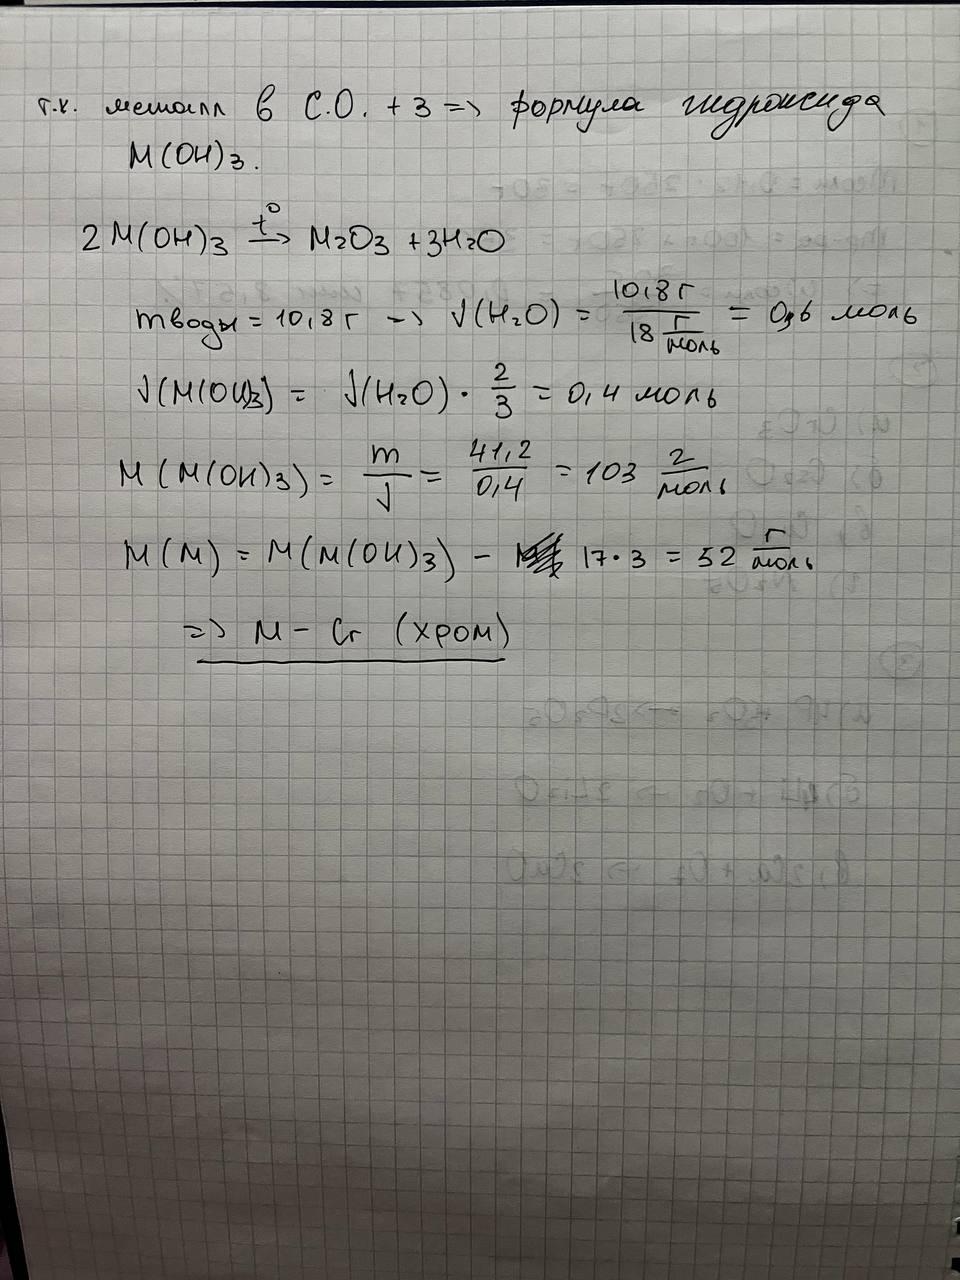 т.к. металл в С.О. +3 => формула гидроксида
M(OH)3.
2M(OH)3 t°→ M2O3 + 3H2O
mводы = 10,8 г -> √(H2O) = 10,8 г / 18 г/моль = 0,6 моль
√(M(OH)3) = √(H2O) · 2/3 = 0,4 моль
M(M(OH)3) = m/√ = 41,2/0,4 = 103 г/моль
M(M) = M(M(OH)3) - 17·3 = 52 г/моль
=> M - Cr (хром)